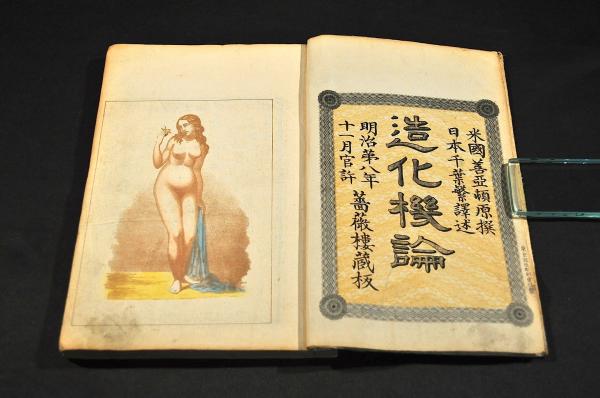 米國善亞頓原撰
日本千葉繁譯述
造化機論
明治第八年
十一月官許
薔薇樓蔵板